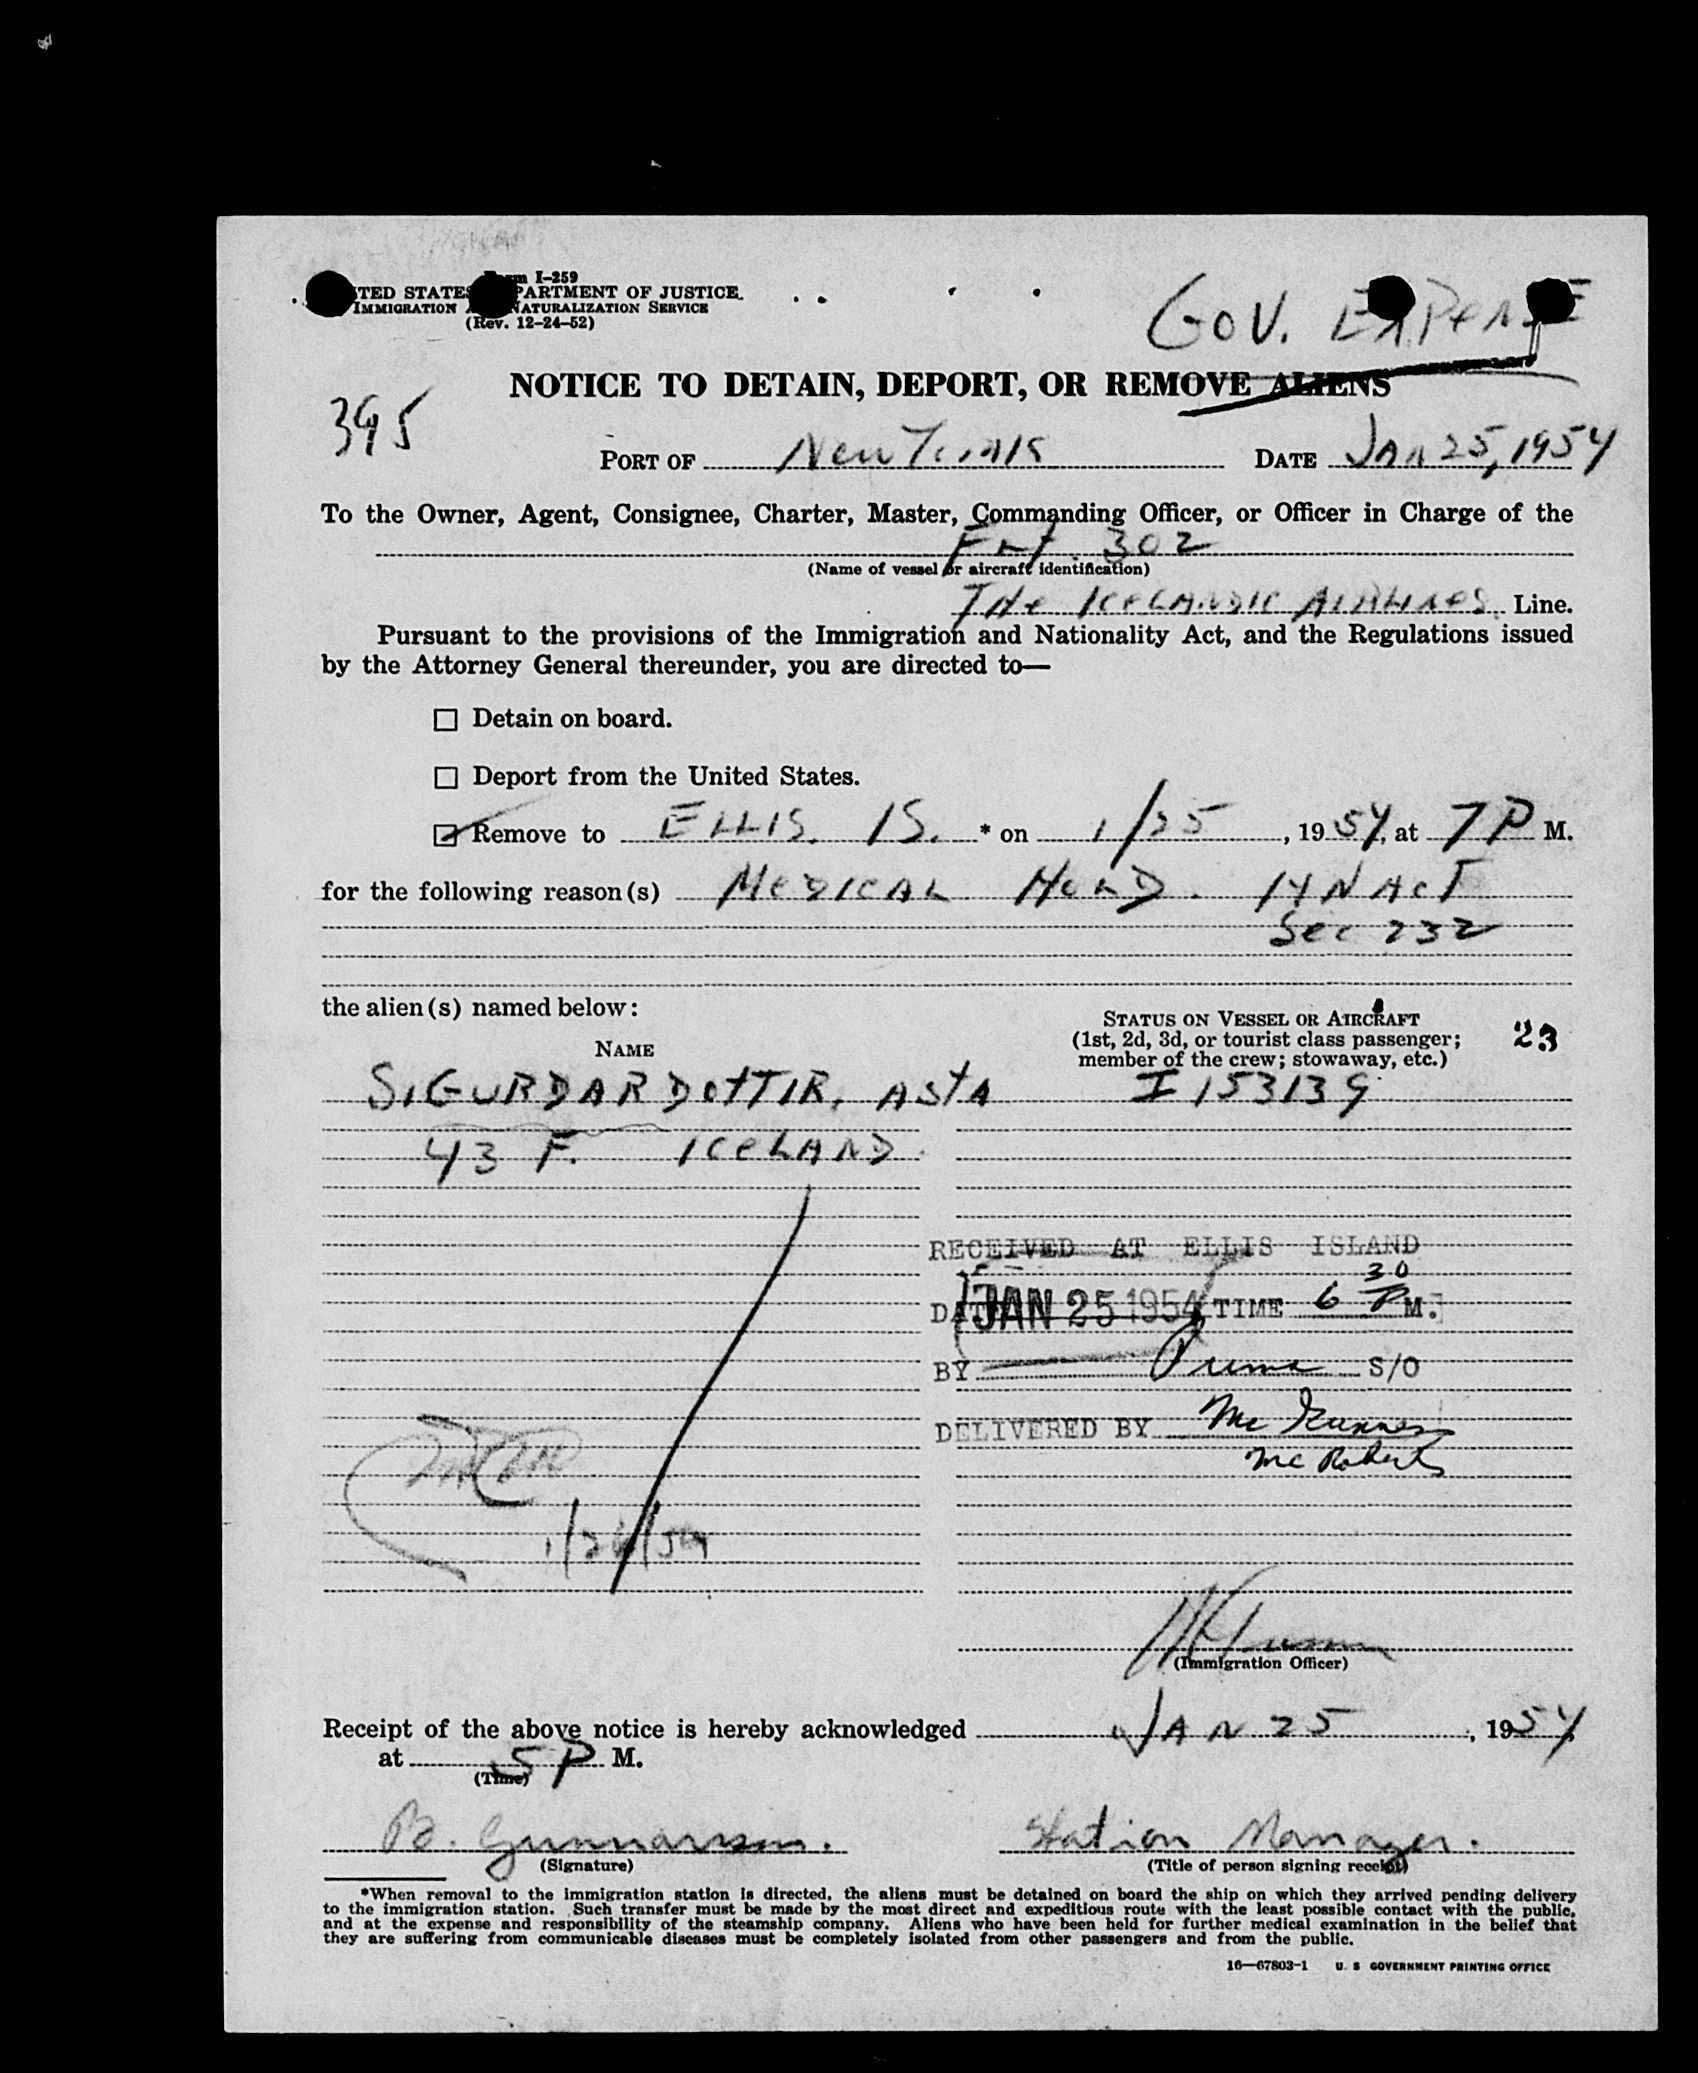 Form I-259
UNITED STATES DEPARTMENT OF JUSTICE
IMMIGRATION AND NATURALIZATION SERVICE
(Rev. 12-24-52)
GOV. EXPENSE
NOTICE TO DETAIN, DEPORT, OR REMOVE ALIENS
395
PORT OF New York DATE JAN 25, 1954
To the Owner, Agent, Consignee, Charter, Master, Commanding Officer, or Officer in Charge of the
FLT. 302
(Name of vessel or aircraft identification)
THE ICELANDIC AIRLINES Line.
Pursuant to the provisions of the Immigration and Nationality Act, and the Regulations issued
by the Attorney General thereunder, you are directed to—
☐ Detain on board.
☐ Deport from the United States.
☑ Remove to ELLIS. IS. * on 1/25, 1954, at 7 P M.
for the following reason(s) MEDICAL HOLD. I+N ACT
Sec 232
the alien(s) named below:
STATUS ON VESSEL OR AIRCRAFT
(1st, 2d, 3d, or tourist class passenger;
member of the crew; stowaway, etc.)
23
NAME
SIGURDARDOTTIR, ASTA I 153139
43 F. ICELAND
RECEIVED AT ELLIS ISLAND
DATE JAN 25 1954 TIME 6 30 P M.
BY S/O
DELIVERED BY
Mc Roberts
1/26/54
(Immigration Officer)
Receipt of the above notice is hereby acknowledged JAN 25, 1954
at 5 P M.
(Time)
B. Gunnarsson. Station Manager.
(Signature) (Title of person signing receipt)
*When removal to the immigration station is directed, the aliens must be detained on board the ship on which they arrived pending delivery
to the immigration station. Such transfer must be made by the most direct and expeditious route with the least possible contact with the public,
and at the expense and responsibility of the steamship company. Aliens who have been held for further medical examination in the belief that
they are suffering from communicable diseases must be completely isolated from other passengers and from the public.
16—67803-1 U. S. GOVERNMENT PRINTING OFFICE